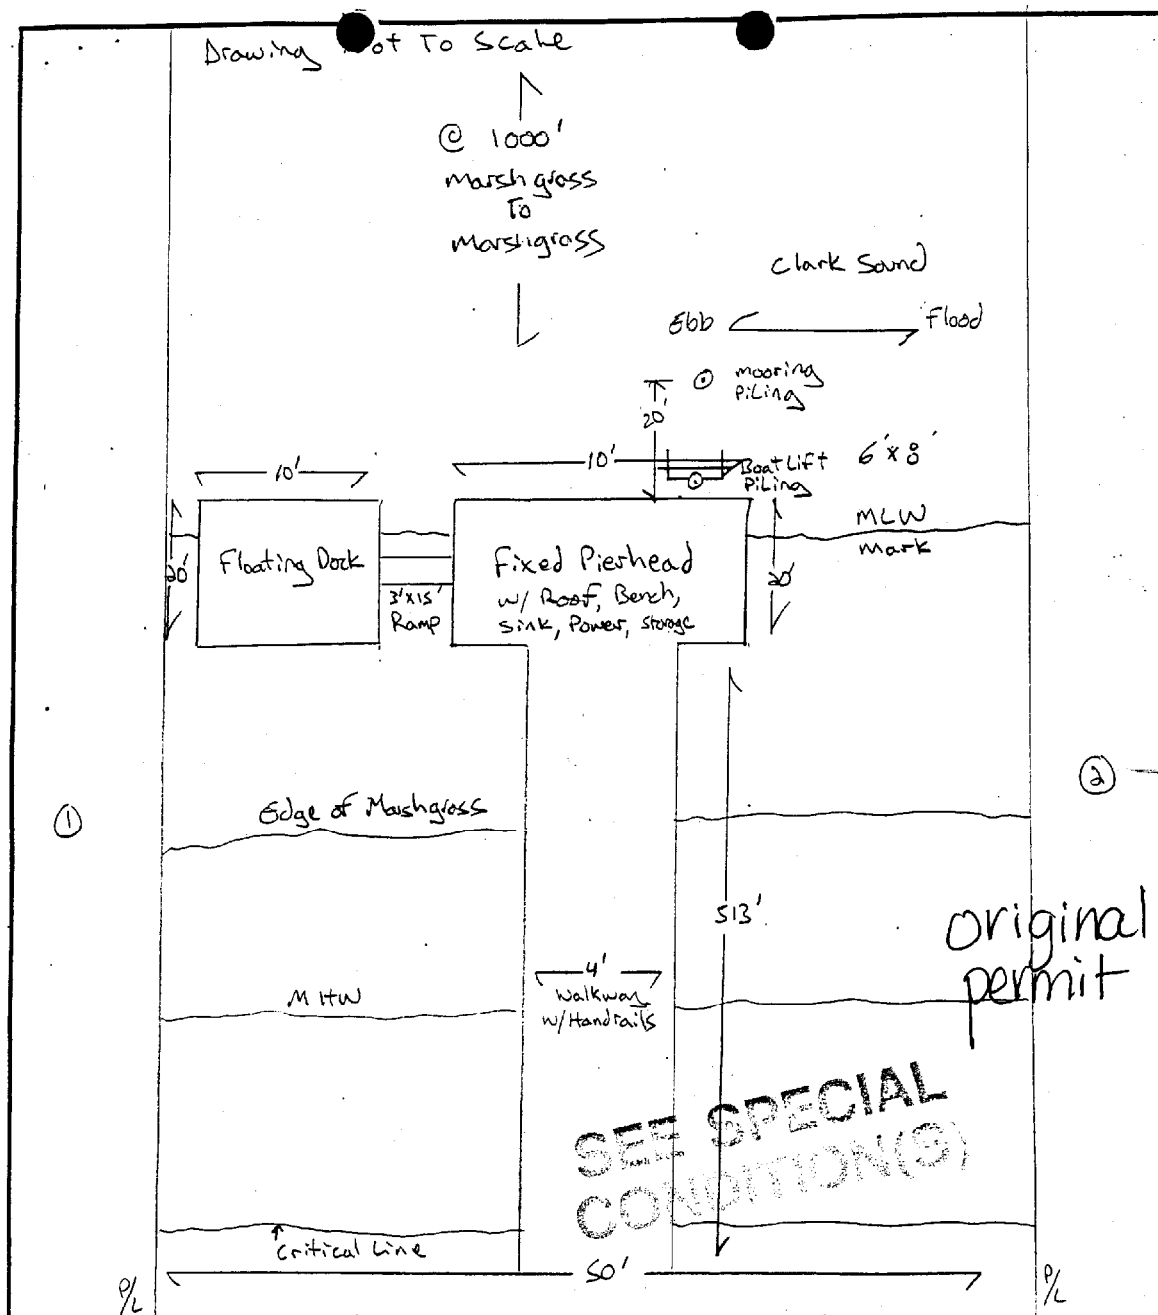 Drawing ot To Scale
@ 1000'
Marsh grass
To
Marshgrass
Clark Sound
Ebb
Flood
mooring
PiLing
20'
10'
10'
Boat Lift
PiLing
6'x8'
MLW
mark
20'
Floating Dock
3'x15'
Ramp
Fixed Pierhead
w/ Roof, Bench,
sink, Power, storage
20'
2
1
Edge of Marshgrass
513'
original
permit
4'
Walkway
w/Handrails
MHW
SEE SPECIAL
CONDITION(S)
Critical Line
50'
P/L
P/L